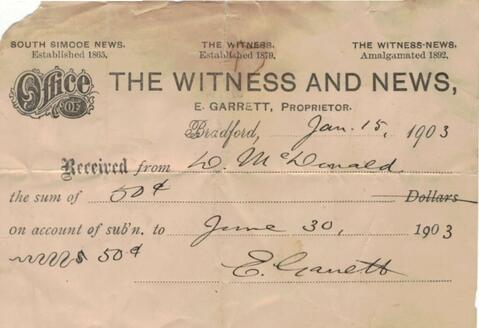 SOUTH SIMCOE NEWS. THE WITNESS. THE WITNESS-NEWS.
Established 1865. Established 1879. Amalgamated 1892.
Office OF THE WITNESS AND NEWS,
E. GARRETT, PROPRIETOR.
Bradford, Jan. 15, 1903
Received from D. McDonald
the sum of 50¢ Dollars
on account of sub'n. to June 30, 1903
50¢ E. Garrett